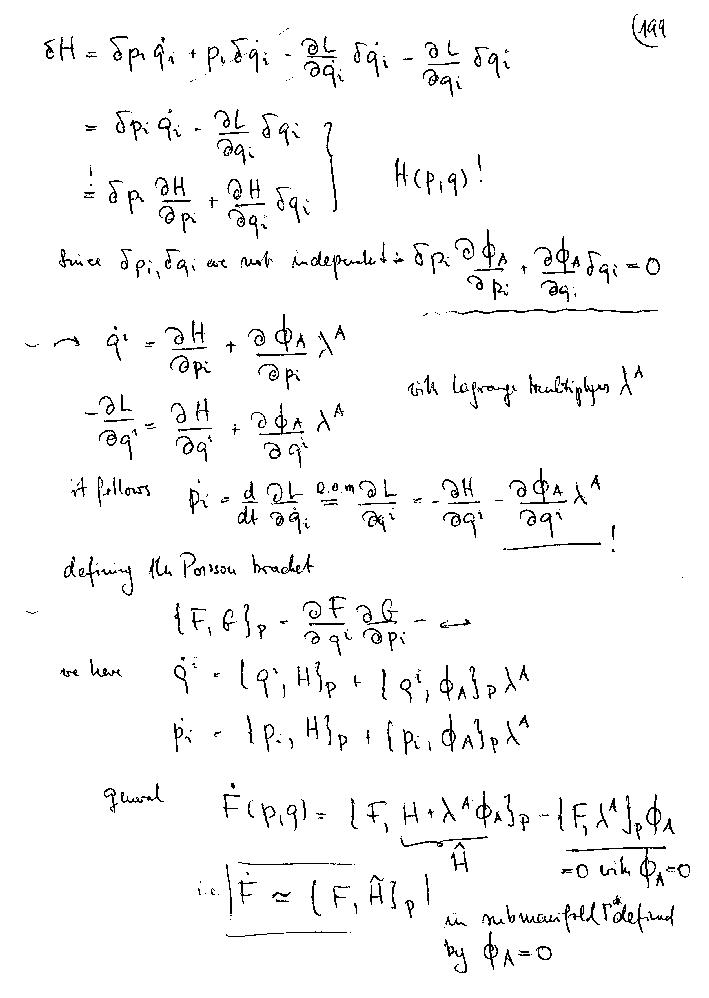 (199
δH = δpᵢ q̇ᵢ + pᵢ δq̇ᵢ - ∂L/∂q̇ᵢ δq̇ᵢ - ∂L/∂qᵢ δqᵢ
= δpᵢ q̇ᵢ - ∂L/∂qᵢ δqᵢ
≟ δpᵢ ∂H/∂pᵢ + ∂H/∂qᵢ δqᵢ } H(p,q)!
Since δpᵢ, δqᵢ are not independent: δpᵢ ∂ϕ_A/∂pᵢ + ∂ϕ_A/∂qᵢ δqᵢ = 0
~ → q̇ⁱ = ∂H/∂pᵢ + ∂ϕ_A/∂pᵢ λ^A
with Lagrange multiplyers λ^A
-∂L/∂qⁱ = ∂H/∂qⁱ + ∂ϕ_A/∂qⁱ λ^A
it follows ṗᵢ = d/dt ∂L/∂q̇ᵢ =(e.o.m) ∂L/∂qⁱ = -∂H/∂qⁱ - ∂ϕ_A/∂qⁱ λ^A !
defining the Poisson bracket
{F, G}_P = ∂F/∂qⁱ ∂G/∂pᵢ - ↔
we have q̇ⁱ = {qⁱ, H}_P + {qⁱ, ϕ_A}_P λ^A
ṗᵢ = {pᵢ, H}_P + {pᵢ, ϕ_A}_P λ^A
general Ḟ(p,q) = {F, H + λ^A ϕ_A}_P - {F, λ^A}_P ϕ_A
Ĥ =0 with ϕ_A=0
i.e. Ḟ ≃ {F, H̃}_P
in submanifold Γ* defined
by ϕ_A = 0